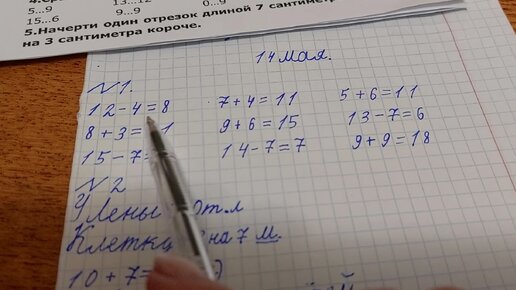 5...9 13...12 0...9
15...6 9...9
5.Начерти один отрезок длиной 7 сантиметр
на 3 сантиметра короче.
14 мая.
№1.
12-4=8 7+4=11 5+6=11
8+3= 1 9+6=15 13-7=6
15-7= 14-7=7 9+9=18
№2
Улены от.л
Клетк на 7 м.
10+7= )